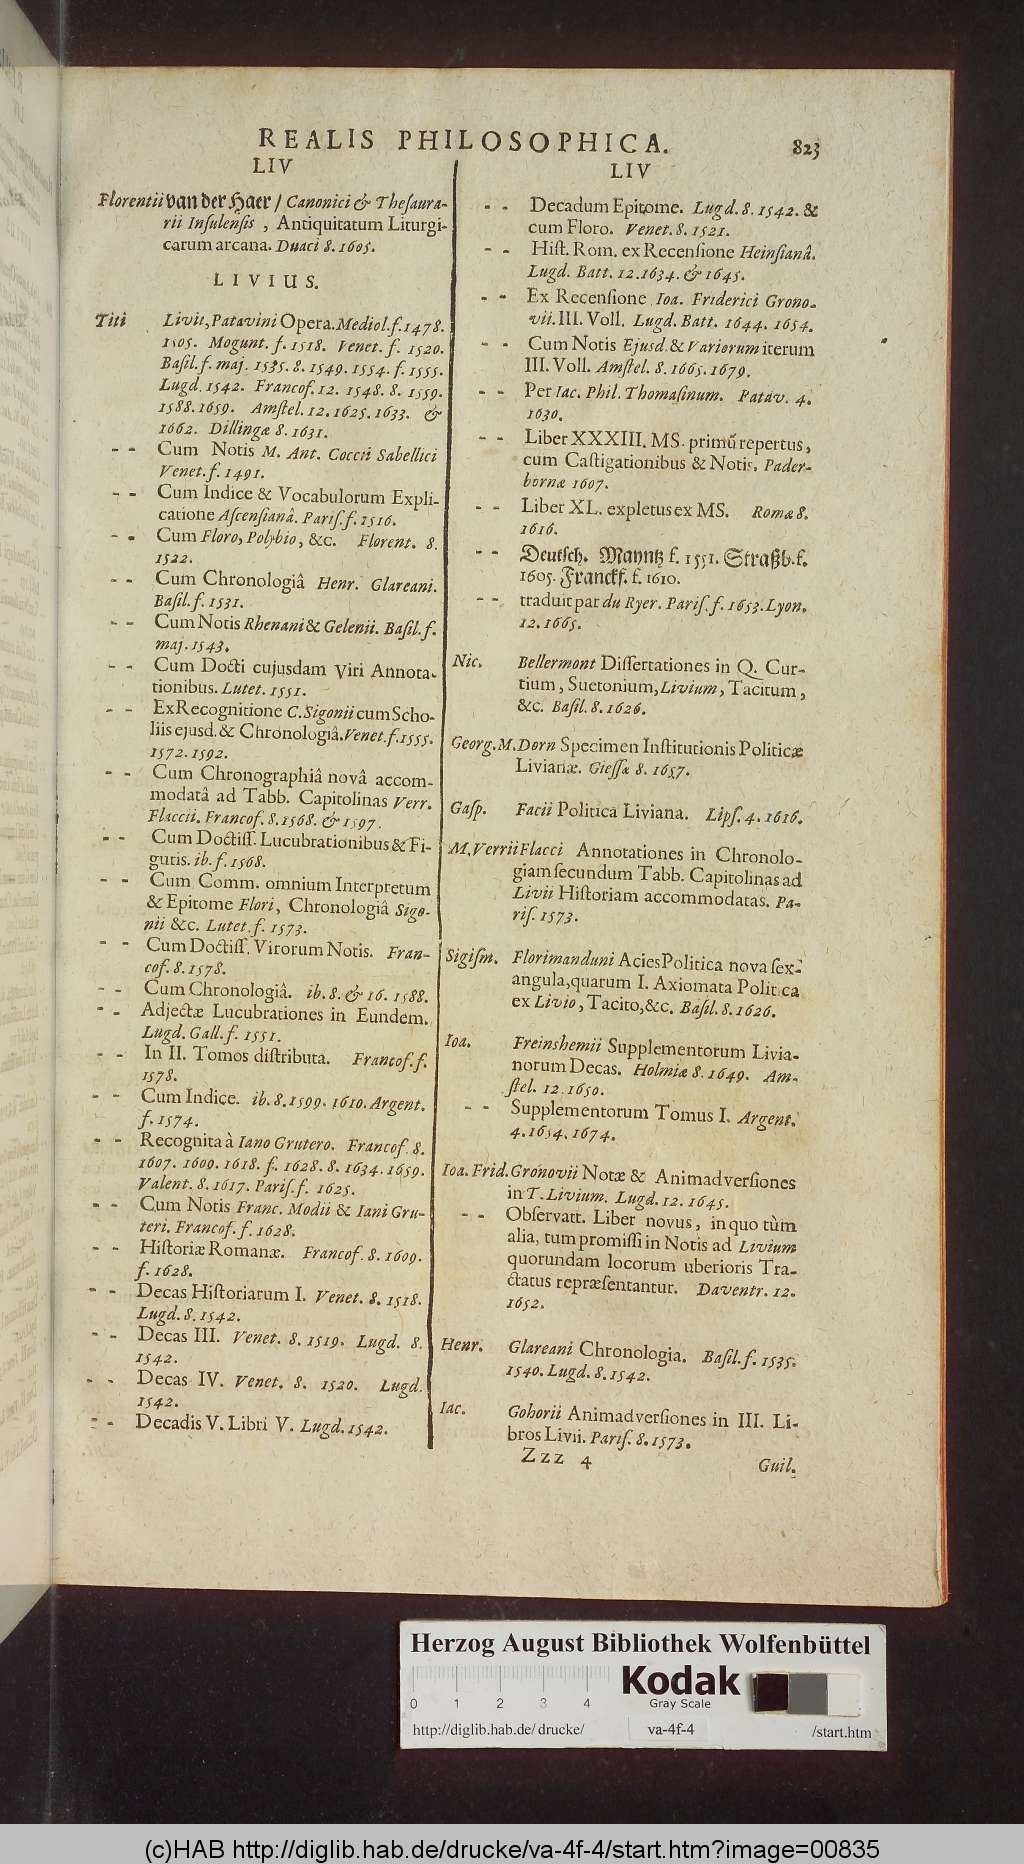 REALIS PHILOSOPHICA. 823
LIV
Florentii van der Haer / Canonici & Thesaura-
rii Insulensis, Antiquitatum Liturgi-
carum arcana. Duaci 8. 1605.
LIVIUS.
Titi Livii, Patavini Opera. Mediol. f. 1478.
1505. Mogunt. f. 1518. Venet. f. 1520.
Basil. f. maj. 1535. 8. 1549. 1554. f. 1555.
Lugd. 1542. Francof. 12. 1548. 8. 1559.
1588. 1659. Amstel. 12. 1625. 1633. &
1662. Dillingæ 8. 1631.
- - Cum Notis M. Ant. Coccii Sabellici
Venet. f. 1491.
- - Cum Indice & Vocabulorum Expli-
catione Ascensianâ. Paris. f. 1516.
- - Cum Floro, Polybio, &c. Florent. 8.
1522.
- - Cum Chronologiâ Henr. Glareani.
Basil. f. 1531.
- - Cum Notis Rhenani & Gelenii. Basil. f.
maj. 1543.
- - Cum Docti cujusdam Viri Annota-
tionibus. Lutet. 1551.
- - Ex Recognitione C. Sigonii cum Scho-
liis ejusd. & Chronologiâ. Venet. f. 1555.
1572. 1592.
- - Cum Chronographiâ novâ accom-
modatâ ad Tabb. Capitolinas Verr.
Flaccii. Francof. 8. 1568. & 1597.
- - Cum Doctiss. Lucubrationibus & Fi-
guris. ib. f. 1568.
- - Cum Comm. omnium Interpretum
& Epitome Flori, Chronologiâ Sigo-
nii &c. Lutet. f. 1573.
- - Cum Doctiss. Virorum Notis. Fran-
cof. 8. 1578.
- - Cum Chronologiâ. ib. 8. & 16. 1588.
- - Adjectæ Lucubrationes in Eundem.
Lugd. Gall. f. 1551.
- - In II. Tomos distributa. Francof. f.
1578.
- - Cum Indice. ib. 8. 1599. 1610. Argent.
f. 1574.
- - Recognita à Iano Grutero. Francof. 8.
1607. 1609. 1618. f. 1628. 8. 1634. 1659.
Valent. 8. 1617. Paris. f. 1625.
- - Cum Notis Franc. Modii & Iani Gru-
teri. Francof. f. 1628.
- - Historiæ Romanæ. Francof. 8. 1609.
f. 1628.
- - Decas Historiarum I. Venet. 8. 1518.
Lugd. 8. 1542.
- - Decas III. Venet. 8. 1519. Lugd. 8.
1542.
- - Decas IV. Venet. 8. 1520. Lugd.
1542.
- - Decadis V. Libri V. Lugd. 1542.
LIV
- - Decadum Epitome. Lugd. 8. 1542. &
cum Floro. Venet. 8. 1521.
- - Hist. Rom. ex Recensione Heinsianâ.
Lugd. Batt. 12. 1634. & 1645.
- - Ex Recensione Ioa. Friderici Grono-
vii. III. Voll. Lugd. Batt. 1644. 1654.
- - Cum Notis Ejusd. & Variorum iterum
III. Voll. Amstel. 8. 1665. 1679.
- - Per Iac. Phil. Thomasinum. Patav. 4.
1630.
- - Liber XXXIII. MS. primũ repertus,
cum Castigationibus & Notis. Pader-
bornæ 1607.
- - Liber XL. expletus ex MS. Romæ 8.
1616.
- - Deutsch. Mayntz f. 1551. Straßb. f.
1605. Franckf. f. 1610.
- - traduit par du Ryer. Paris. f. 1653. Lyon.
12. 1665.
Nic. Bellermont Dissertationes in Q. Cur-
tium, Suetonium, Livium, Tacitum,
&c. Basil. 8. 1626.
Georg. M. Dorn Specimen Institutionis Politicæ
Livianæ. Giessæ 8. 1657.
Gasp. Facii Politica Liviana. Lips. 4. 1616.
M. Verrii Flacci Annotationes in Chronolo-
giam secundum Tabb. Capitolinas ad
Livii Historiam accommodatas. Pa-
ris. 1573.
Sigism. Florimanduni Acies Politica nova sex-
angula, quarum I. Axiomata Politica
ex Livio, Tacito, &c. Basil. 8. 1626.
Ioa. Freinshemii Supplementorum Livia-
norum Decas. Holmiæ 8. 1649. Am-
stel. 12. 1650.
- - Supplementorum Tomus I. Argent.
4. 1654. 1674.
Ioa. Frid. Gronovii Notæ & Animadversiones
in T. Livium. Lugd. 12. 1645.
- - Observatt. Liber novus, in quo tùm
alia, tum promissi in Notis ad Livium
quorundam locorum uberioris Tra-
ctatus repræsentantur. Daventr. 12.
1652.
Henr. Glareani Chronologia. Basil. f. 1535.
1540. Lugd. 8. 1542.
Iac. Gohorii Animadversiones in III. Li-
bros Livii. Paris. 8. 1573.
Zzz 4 Guil.
Herzog August Bibliothek Wolfenbüttel
0 1 2 3 4
Kodak
Gray Scale
http://diglib.hab.de/drucke/ va-4f-4 /start.htm
(c)HAB http://diglib.hab.de/drucke/va-4f-4/start.htm?image=00835